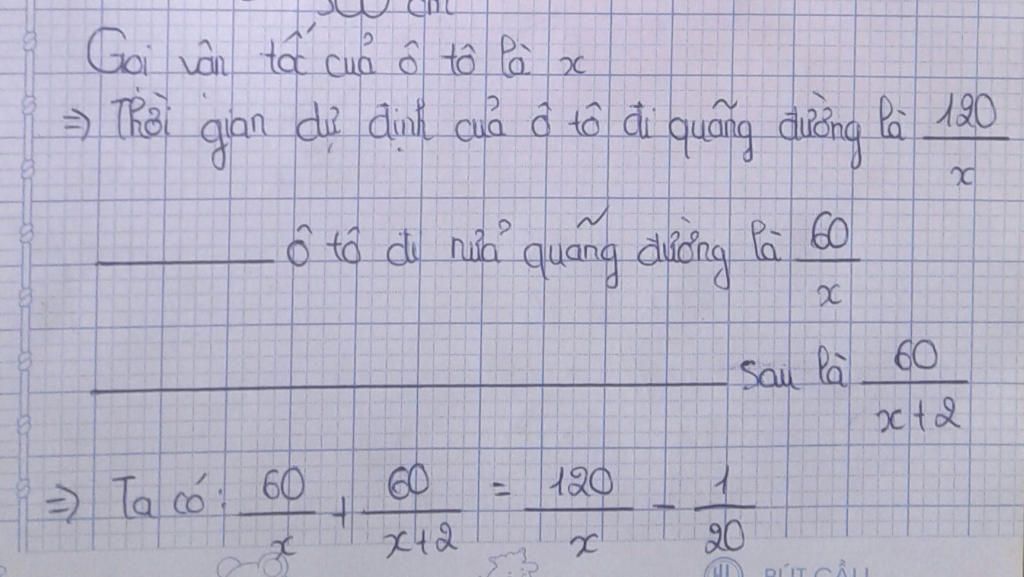 Gọi vận tốc của ô tô là x
⇒ Thời gian dự định của ô tô đi quãng đường là 120/x
_____ ô tô đi nửa quãng đường là 60/x
_____ sau là 60/(x+2)
⇒ Ta có: 60/x + 60/(x+2) = 120/x - 1/20